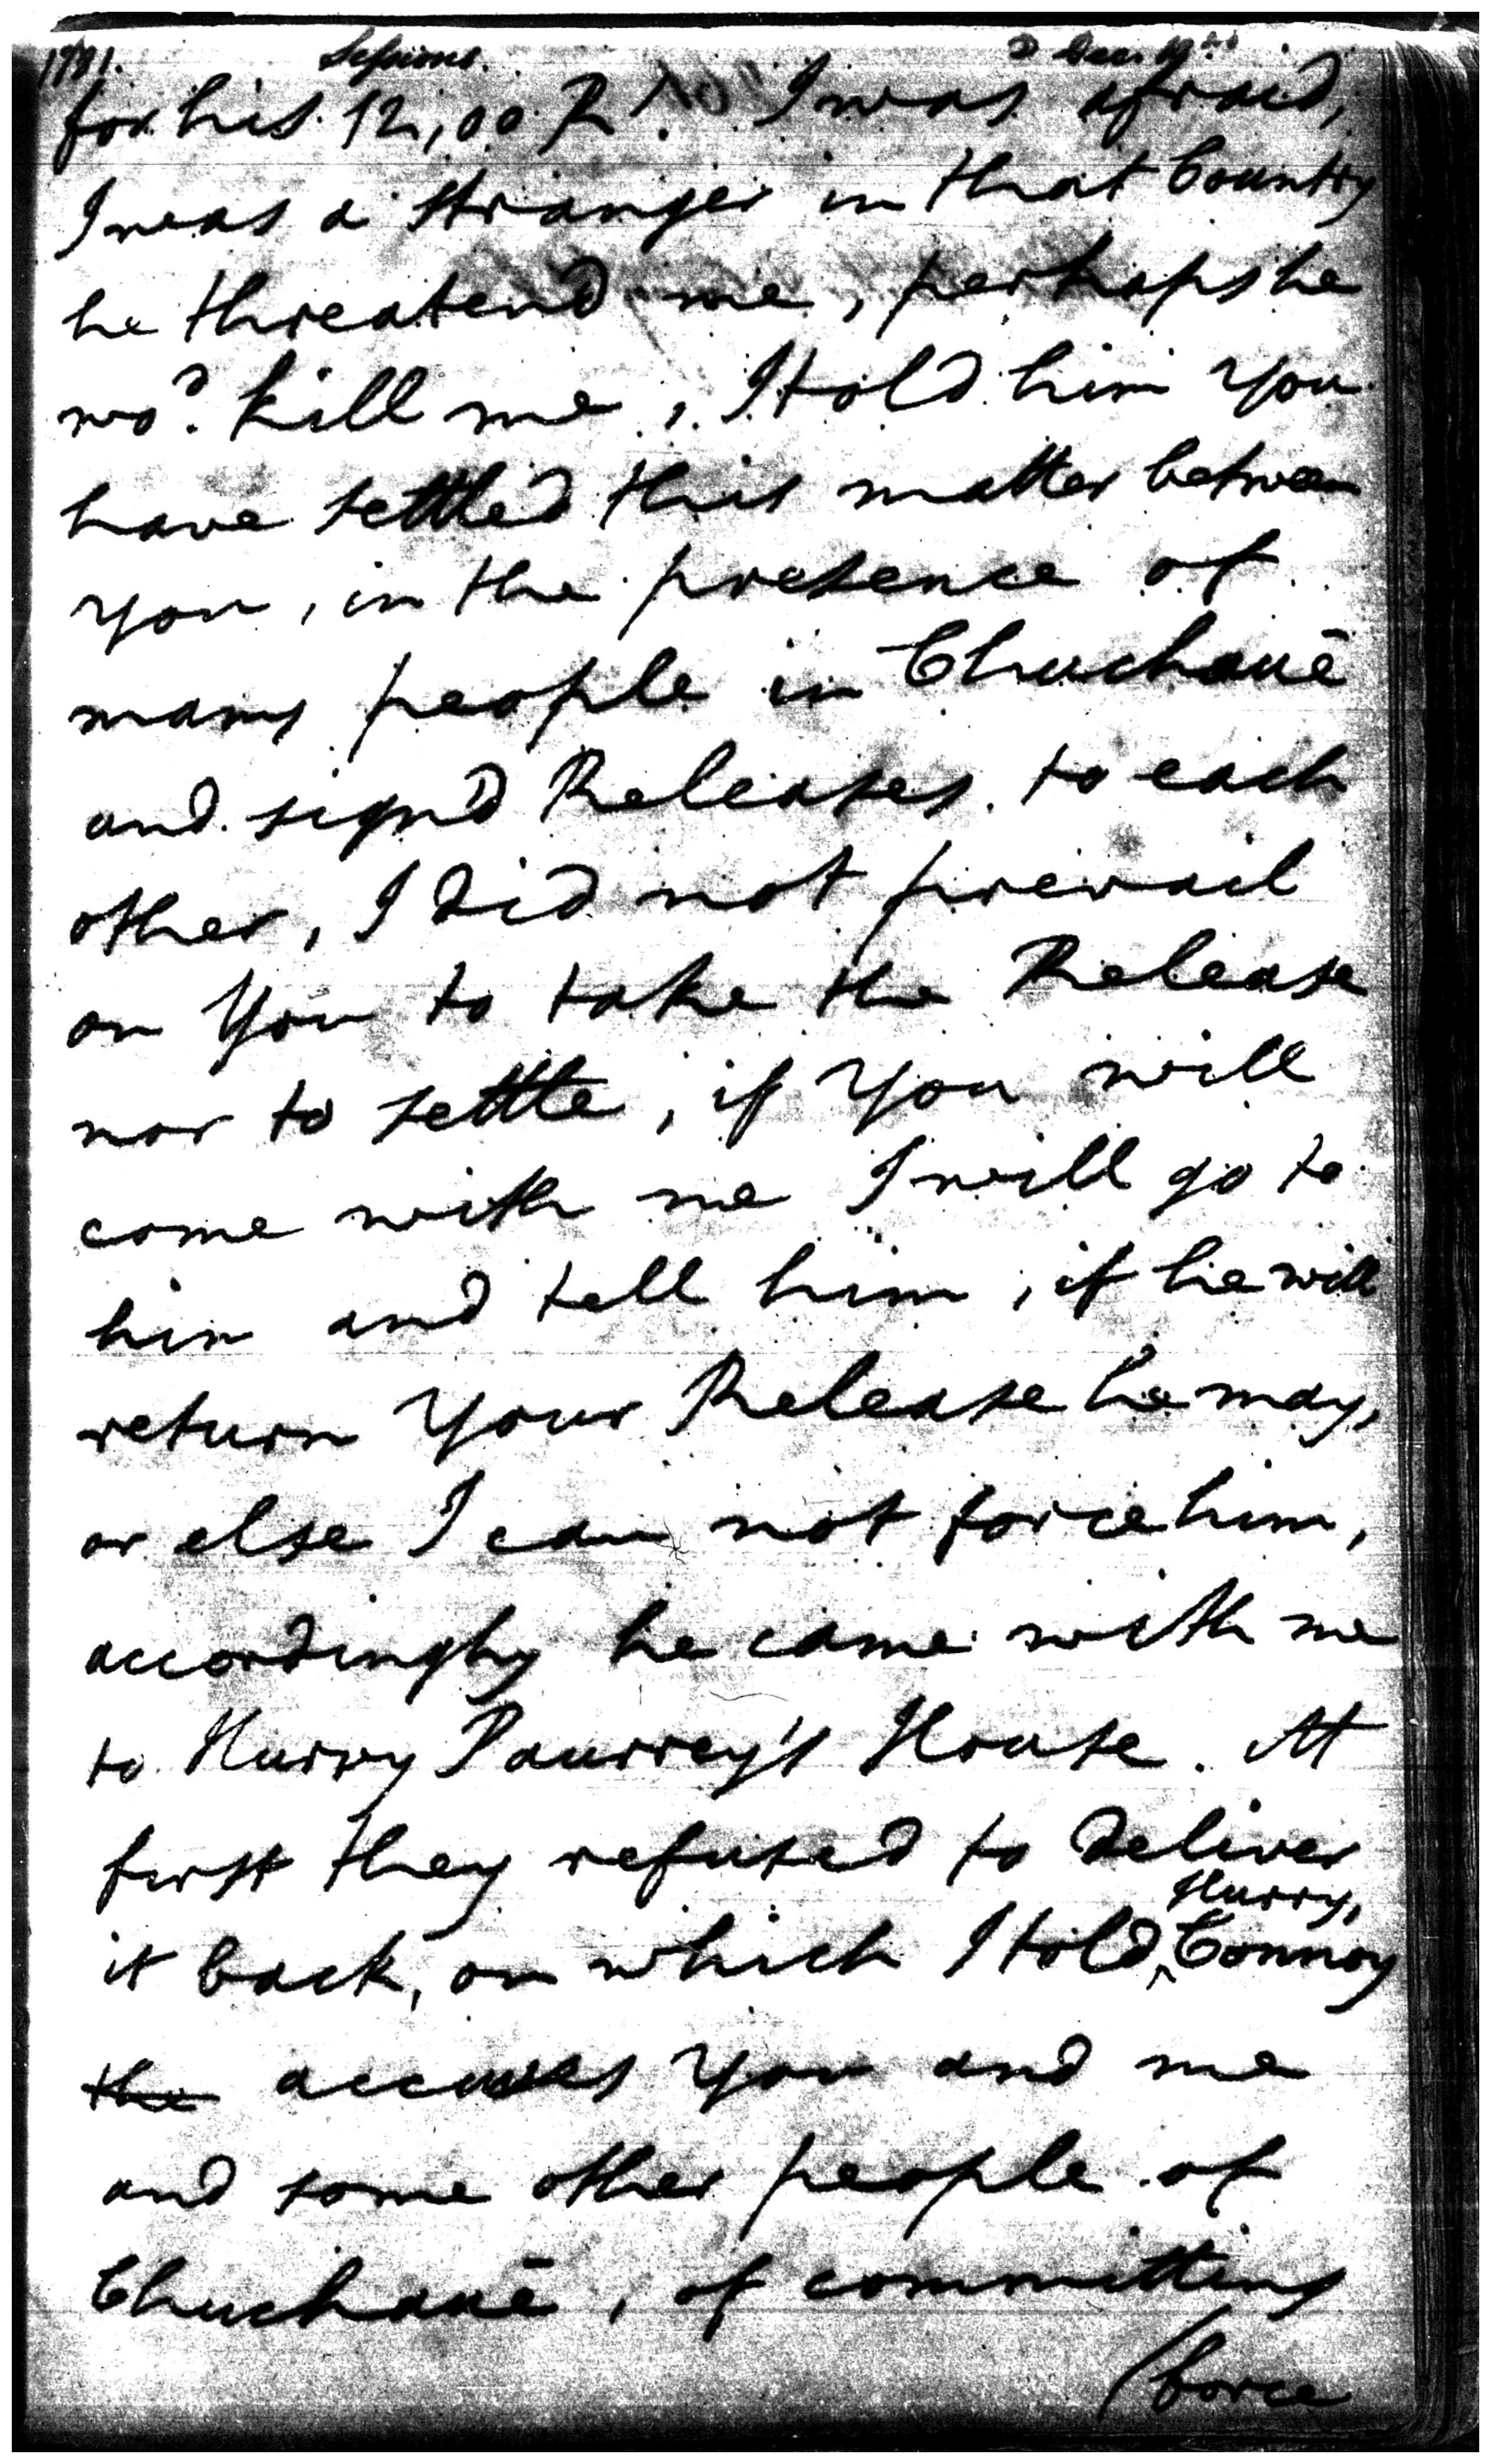 1781. Sessions. Dec. 19th
for his 12,00 Rs. I was afraid,
I was a stranger in that Country
he threatend me, perhaps he
wod. kill me, I told him You
have settled this matter between
you, in the presence of
many people in Chuchauē
and sign'd Releases to each
other, I did not prevail
on You to take the Release
nor to settle, if You will
come with me I will go to
him and tell him, if he will
return Your Release he may,
or else I can not force him,
accordingly he came with me
to Hurry Paurrey's House. At
first they refused to deliver
it back, on which I told Hurry, Connoy
the accuses You and me
and some other people of
Chuchauē, of committing
(force